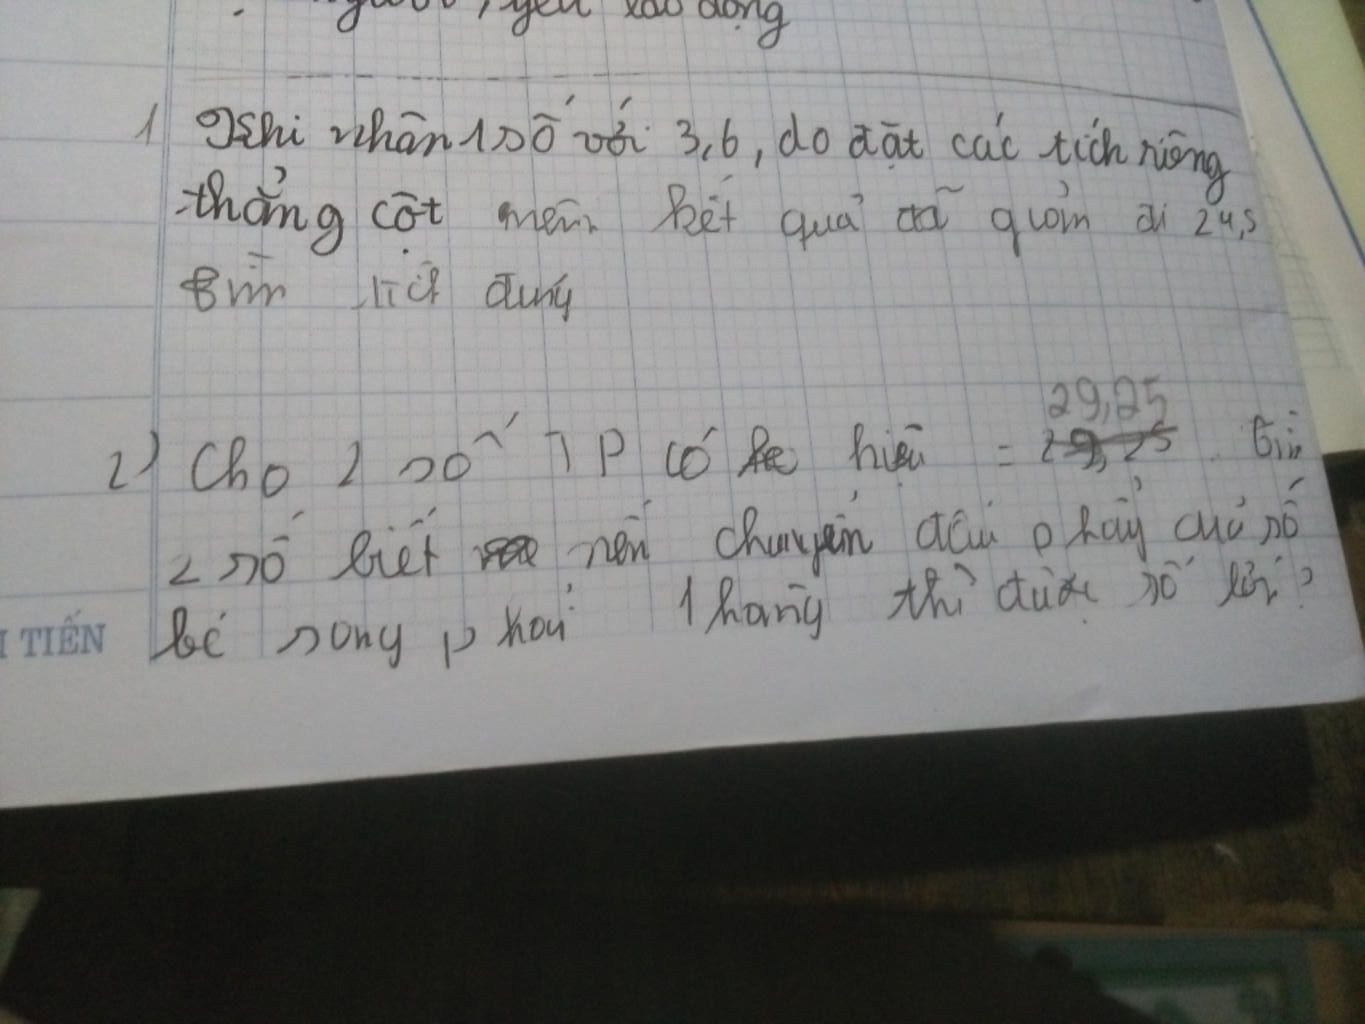 người, yêu lao động
1 Khi nhân 1 số với 3,6, do đặt các tích riêng
thẳng cột nên kết quả đã giảm đi 24,5
Tìm tích đúng
29,25
2) Cho 2 số TP có hiệu = 29,25. Tìm
2 số biết nếu chuyển dấu phẩy của số
bé sang phải 1 hàng thì được số lớn?
TIẾN